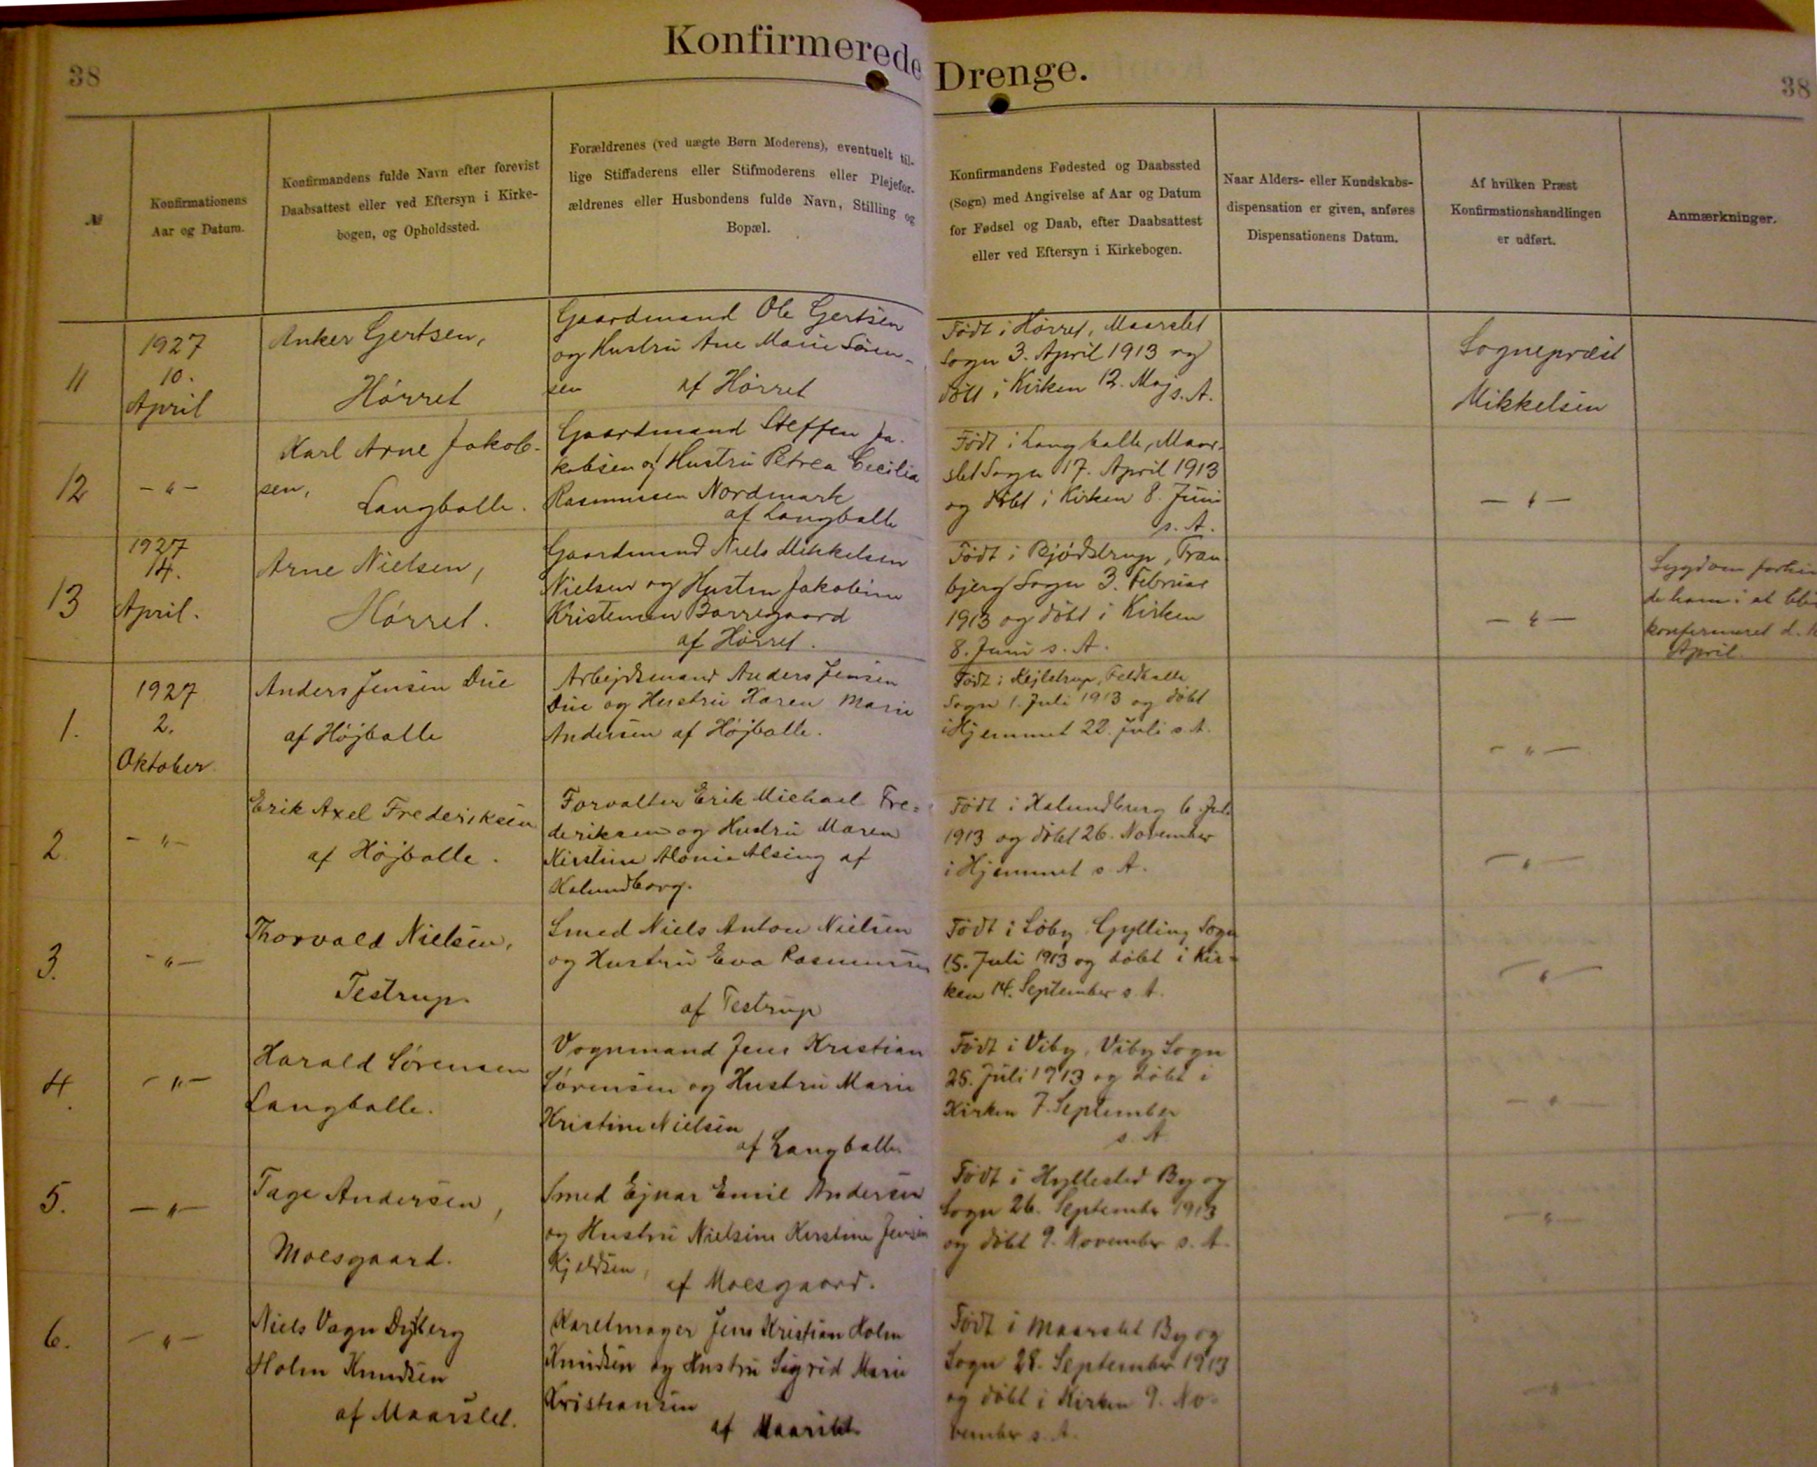 38
Konfirmerede Drenge.
38
№
Konfirmationens
Aar og Datum.
Konfirmandens fulde Navn efter forevist
Daabsattest eller ved Eftersyn i Kirke-
bogen, og Opholdssted.
Forældrenes (ved uægte Børn Moderens), eventuelt til-
lige Stiffaderens eller Stifmoderens eller Plejefor-
ældrenes eller Husbondens fulde Navn, Stilling og
Bopæl.
Konfirmandens Fødested og Daabssted
(Sogn) med Angivelse af Aar og Datum
for Fødsel og Daab, efter Daabsattest
eller ved Eftersyn i Kirkebogen.
Naar Alders- eller Kundskabs-
dispensation er given, anføres
Dispensationens Datum.
Af hvilken Præst
Konfirmationshandlingen
er udført.
Anmærkninger.
11
1927
10.
April
Anker Gertsen,
Hørret
Gaardmand Ole Gertsen
og Hustru Ane Marie Søren-
sen af Hørret
Født i Hørret, Maarslet
Sogn 3. April 1913 og
døbt i Kirken 12. Maj s. A.
Sognepræst
Mikkelsen
12
— " —
Karl Arne Jakob-
sen,
Langballe.
Gaardmand Steffen Ja-
kobsen og Hustru Petrea Cecilia
Rasmussen Nordmark
af Langballe
Født i Langballe, Maar-
slet Sogn 17. April 1913
og døbt i Kirken 8. Juni
s. A.
— " —
13
1927
14.
April.
Arne Nielsen,
Hørret.
Gaardmand Niels Mikkelsen
Nielsen og Hustru Jakobine
Kristensen Borregaard
af Hørret.
Født i Bjødstrup, Tran-
bjerg Sogn 3. Februar
1913 og døbt i Kirken
8. Juni s. A.
— " —
Sygdom
de ham i at
konfirmeret d.
April.
1.
1927
2.
Oktober
Anders Jensen Due
af Højballe
Arbejdsmand Anders Jensen
Due og Hustru Karen Marie
Andersen af Højballe.
Født i Kejlstrup, Feldballe
Sogn 1. Juli 1913 og døbt
i Hjemmet 22. Juli s. A.
— " —
2
— " —
Erik Axel Frederiksen
af Højballe.
Forvalter Erik Michael Fre=
deriksen og Hustru Maren
Kirstine Alsing af
Kalundborg.
Født i Kalundborg 6. Juli
1913 og døbt 26. November
i Hjemmet s. A.
— " —
3.
— " —
Thorvald Nielsen,
Testrup.
Smed Niels Anton Nielsen
og Hustru Eva Rasmussen
af Testrup
Født i Søby Gylling Sogn
15. Juli 1913 og døbt i Kir=
ken 14. September s. A.
— " —
4.
— " —
Harald Sørensen
Langballe.
Vognmand Jens Kristian
Sørensen og Hustru Marie
Kristine Nielsen
af Langballe
Født i Viby, Viby Sogn
25. Juli 1913 og døbt i
Kirken 7. September
s. A
— " —
5.
— " —
Tage Andersen,
Moesgaard.
Smed Ejnar Emil Andersen
og Hustru Nielsine Kirstine Jensen
Kjeldsen,
af Moesgaard.
Født i Hyllested By og
Sogn 26. September 1913
og døbt 9. November s. A.
— " —
6.
— " —
Niels Vagn Dyberg
Holm Knudsen
af Maarslet.
Karetmager Jens Kristian Holm
Knudsen og Hustru Sigrid Marie
Kristiansen
af Maarslet
Født i Maarslet By og
Sogn 28. September 1913
og døbt i Kirken 9. No-
vember s. A.
— " —